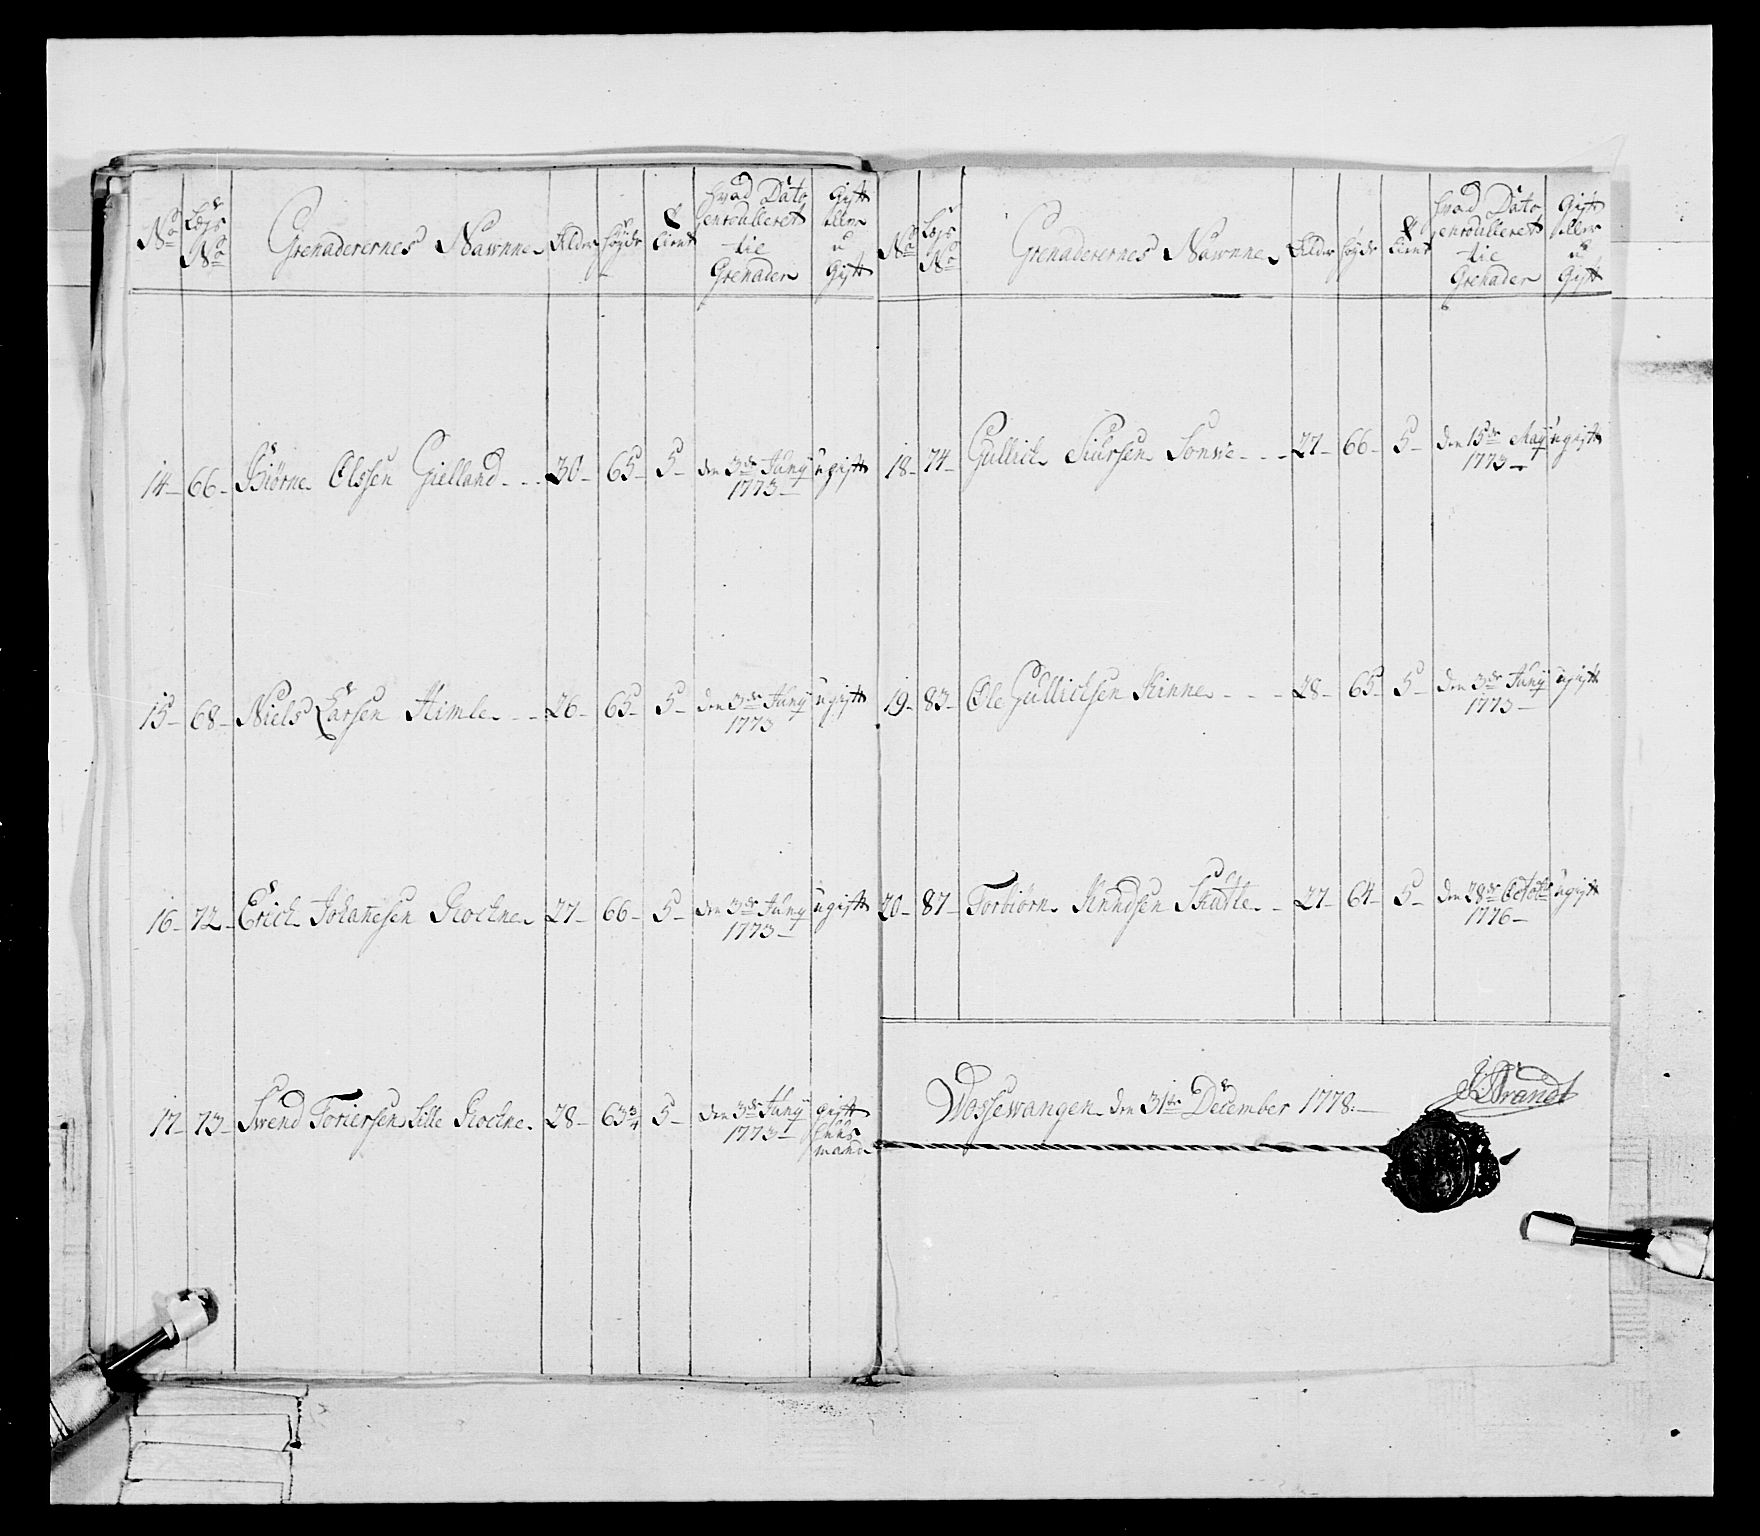 No
Lægs No
Grenaderernes Nawnne
Alder
høyde
Tient
hvad Dato enroulleret tie Grenader
Gift eller u Gift
14 - 66 - Biørne Olssen Gielland - - 30 - 65 - 5 - den 3de Juny 1773 - ugift
15 - 68 - Niels Larsen Himle - - 26 - 65 - 5 - den 3de Juny 1773 ugift
16 - 72 - Erich Johanesen Rockne - 27 - 66 - 5 - den 3de Juny 1773 - ugift
17 - 73 - Swend Toriersen Lille Rockne - 28 - 63 3/4 5 - den 3de Juny 1773 - gift huus mand
No
Lægs No
Grenaderernes Nawnne
Alder
høyde
Tient
hvad Dato enroulleret tie Grenader
Gift eller u Gift
18 - 74 - Gullick Siursen Sonwe - - - 27 - 66 5 - den 15de May 1773 - ugift
19 - 83 - Ole Gullicksen Kinne - - - 28 - 65 - 5 - den 3de Juny 1773 - ugift
20 - 87 - Torbiørn Knudsen Skutle - - 27 - 64 - 5 - den 28de Octobr 1776 - ugift
Wossewangen den 31te December 1778. -
Brandt